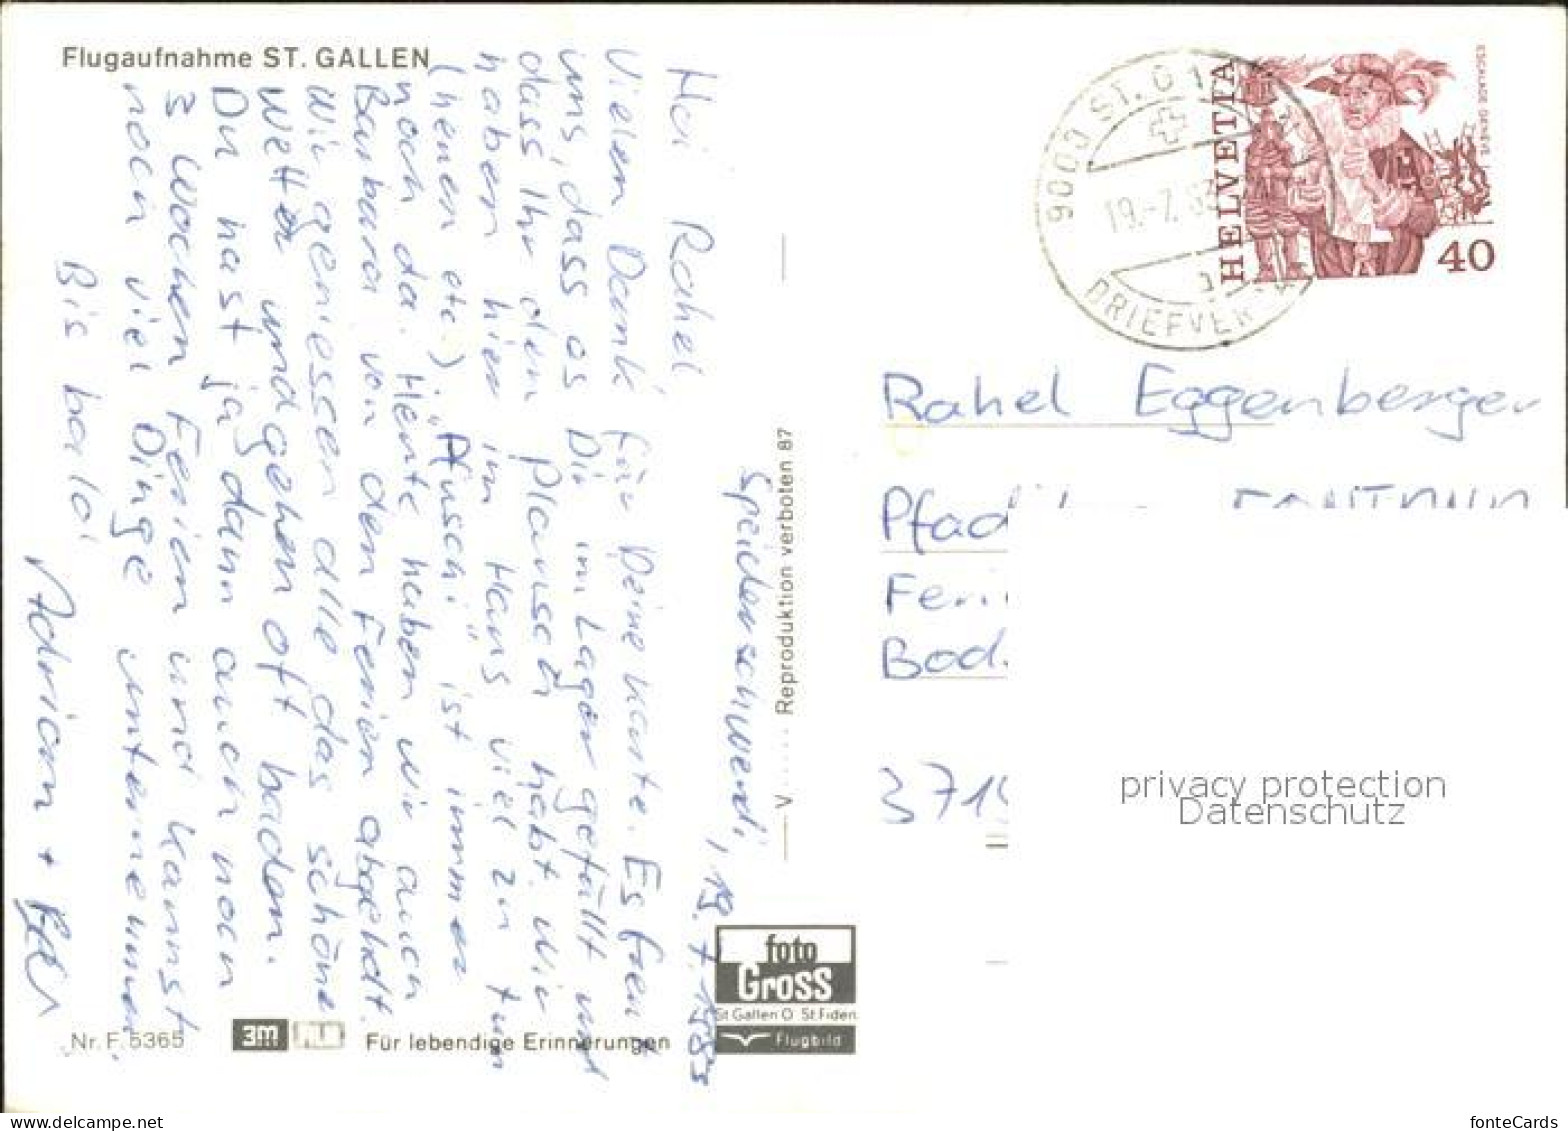 Flugaufnahme ST. GALLEN
Speicherschwendi, 19.7.1983
Hoi Rahel
Vielen Dank für Deine Karte. Es freut
uns, dass es Dir im Lager gefällt und
dass Ihr den Plausch habt. Wir
haben hier im Haus viel zu tun
(heuen etc.). "Pfuschi" ist immer
noch da. Heute haben wir auch
Barbara von den Ferien abgeholt.
Wir geniessen alle das schöne
Wetter und gehen oft baden.
Du hast ja dann auch noch
3 Wochen Ferien und kannst
noch viel Dinge unternehmen.
Bis bald!
Adrian +
Nr. F. 5365
3M
Für lebendige Erinnerungen
V Reproduktion verboten 87
foto
Gross
St Gallen O St Fiden
Flugbild
9000 ST. G 1
19.-7. 83
BRIEFVER
HELVETIA
ESCALADE GENEVE
40
Rahel Eggenberger
Pfad
Feri
Bod
371
privacy protection
Datenschutz
www.delcampe.net
fonteCards